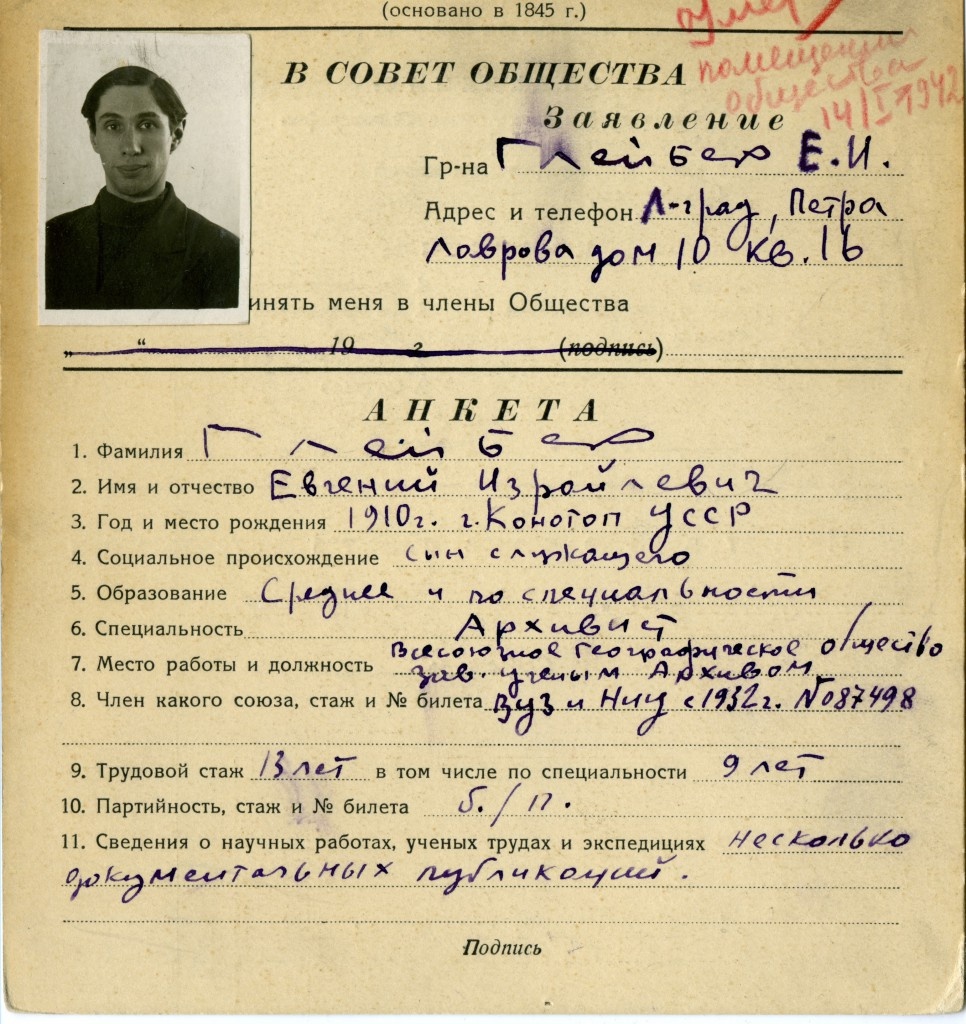 (основано в 1845 г.)
Умер
помещении
общества
14/I 1942
В СОВЕТ ОБЩЕСТВА
Заявление
Гр-на Глейбер Е.И.
Адрес и телефон Л-град, Петра
Лаврова дом 10 кв. 16
инять меня в члены Общества
„ “ 19 г (подпись)
АНКЕТА
1. Фамилия Глейбер
2. Имя и отчество Евгений Израйлевич
3. Год и место рождения 1910г. г. Конотоп УССР
4. Социальное происхождение сын служащего
5. Образование Среднее и по специальности
6. Специальность Архивист
7. Место работы и должность Всесоюзное Географическое общество
зав. ученым Архивом
8. Член какого союза, стаж и № билета Вуз и Ниу с 1932г. №087498
9. Трудовой стаж 13 лет в том числе по специальности 9 лет
10. Партийность, стаж и № билета б./п.
11. Сведения о научных работах, ученых трудах и экспедициях несколько
документальных публикаций.
Подпись